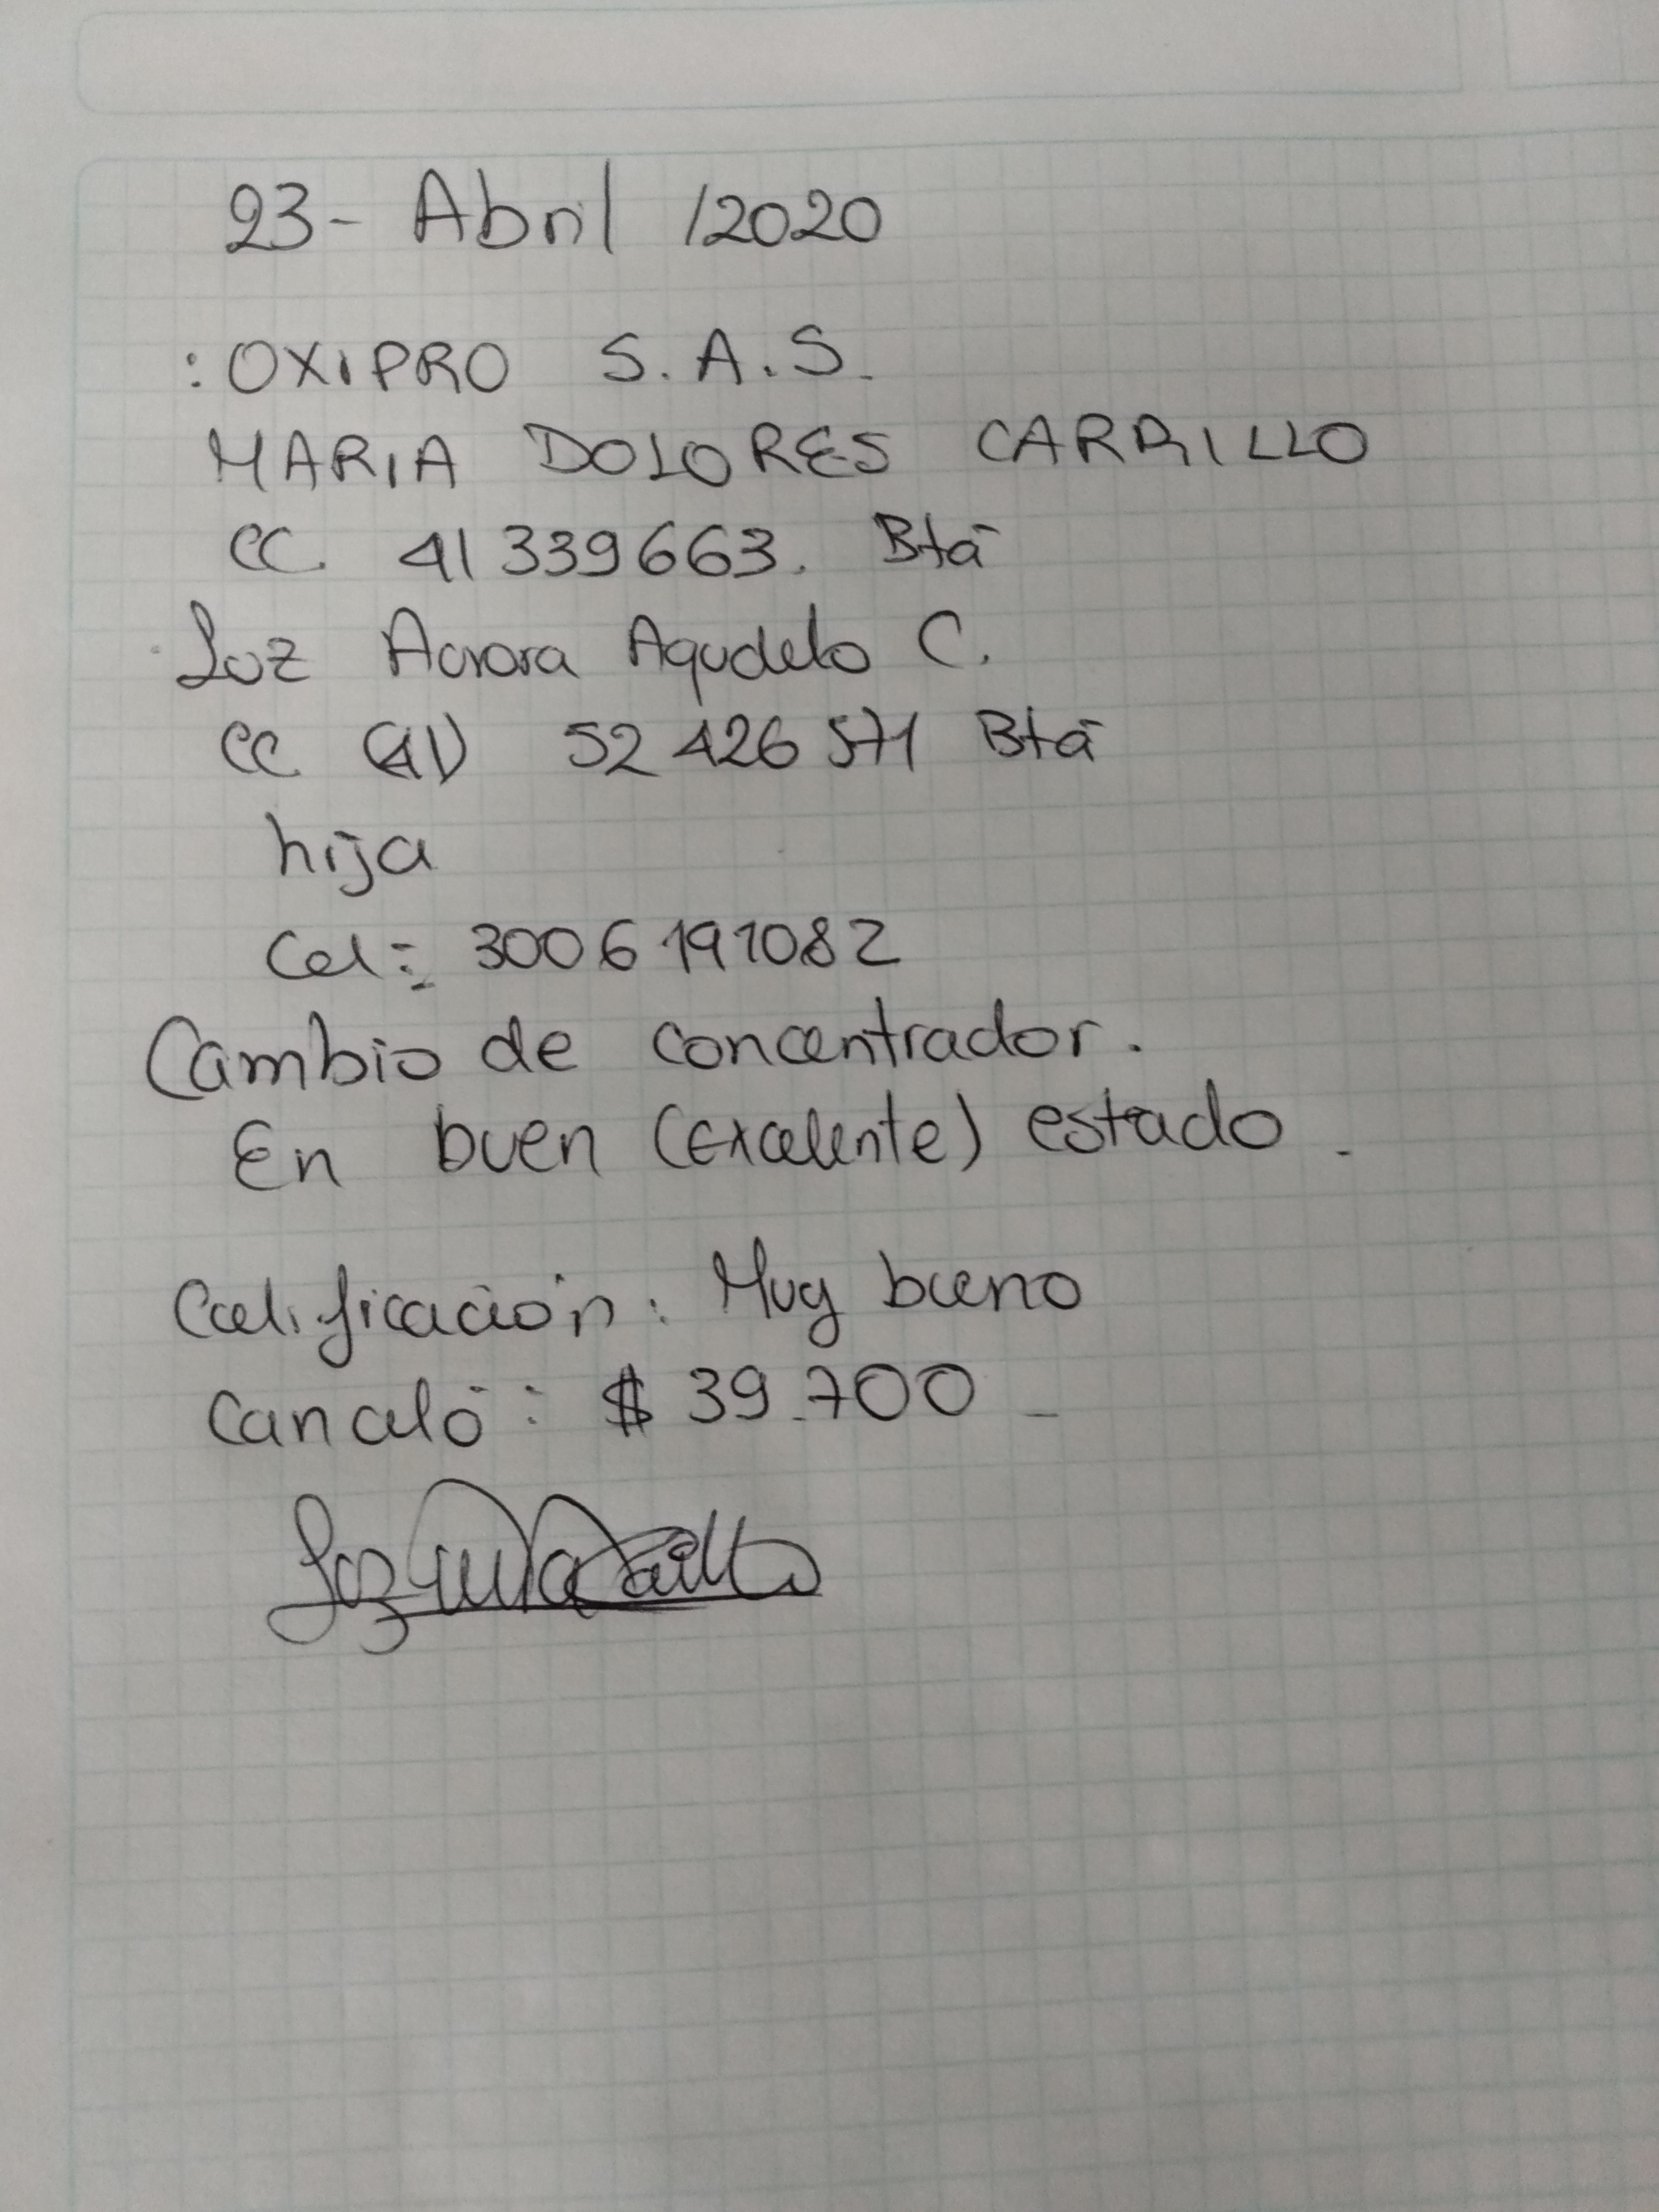 23- Abril /2020
: OXIPRO S.A.S.
MARIA DOLORES CARRILLO
CC. 41 339663. Btá
Luz Aurora Agudelo C.
CC (41) 52 426 571 Btá
hija
Cel: 3006191082
Cambio de concentrador.
En buen (excelente) estado.
Calificación: Muy bueno
Canceló: $ 39.700